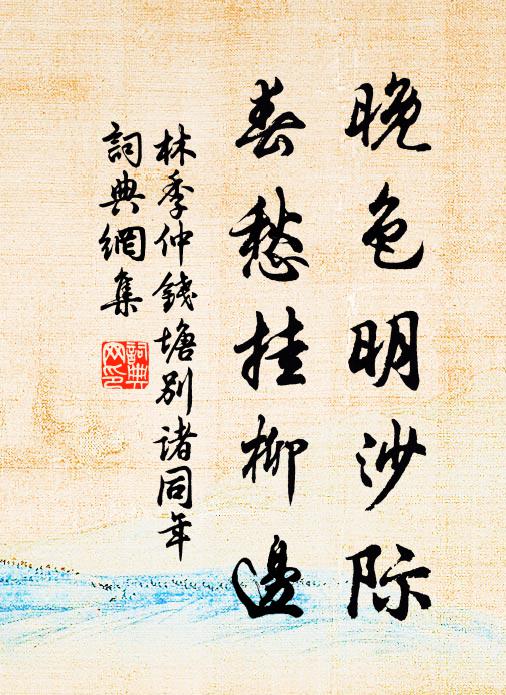 晚色明沙际
春愁挂柳邊
林季仲錢塘别諸同年
詞典網集
詞典網印